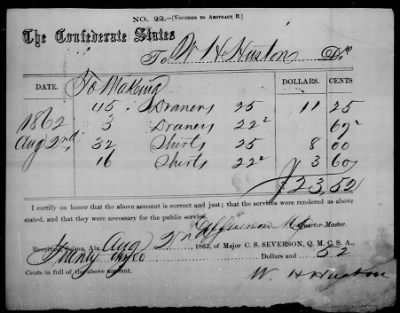 NO. 22.—[VOUCHER TO ABSTRACT, B.]
The Confederate States
To W H Huston Dr.
DATE. DOLLARS. CENTS
To Making
1862 45 Drawers 25 11 25
3 Drawers 22½ 67½
Aug 2nd, 32 Shirts 25 8 00
16 Shirts 22½ 3 60
$23,52
I certify on honor that the above account is correct and just; that the services were rendered as above
stated, and that they were necessary for the public service.
Quarter-Master.
Received, Ala. Aug 2nd 1862, of Major C. S. SEVERSON, Q. M. C. S. A.,
Twenty three Dollars and 52
Cents in full of the above account.
W. H Huston